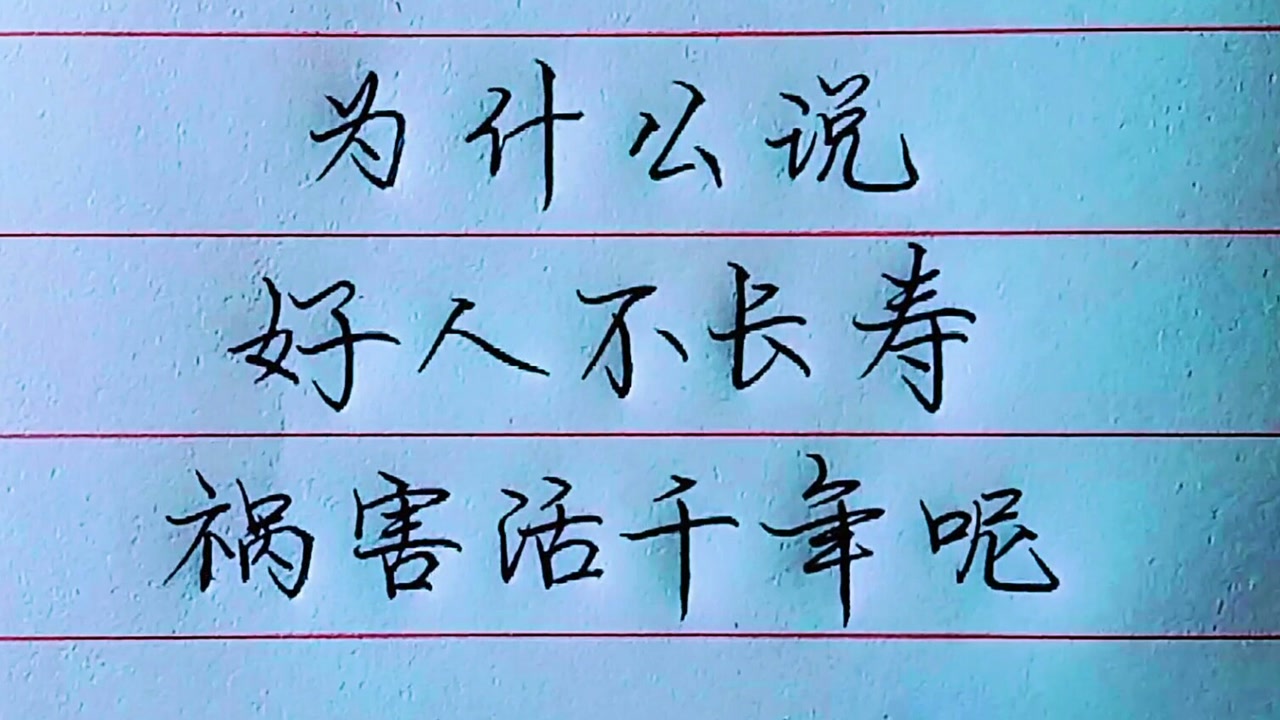 为什么说
好人不长寿
祸害活千年呢